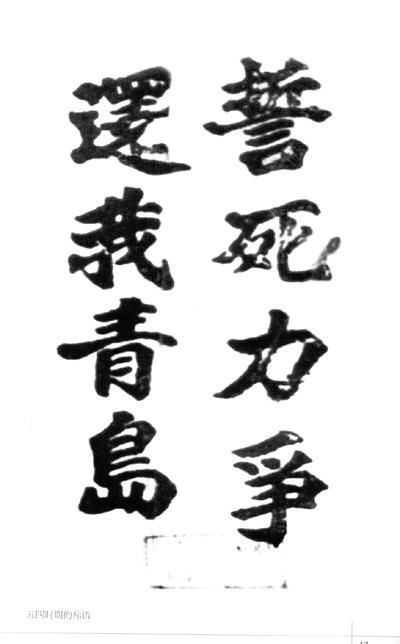 誓死力爭
還我青島
五四时期的标语